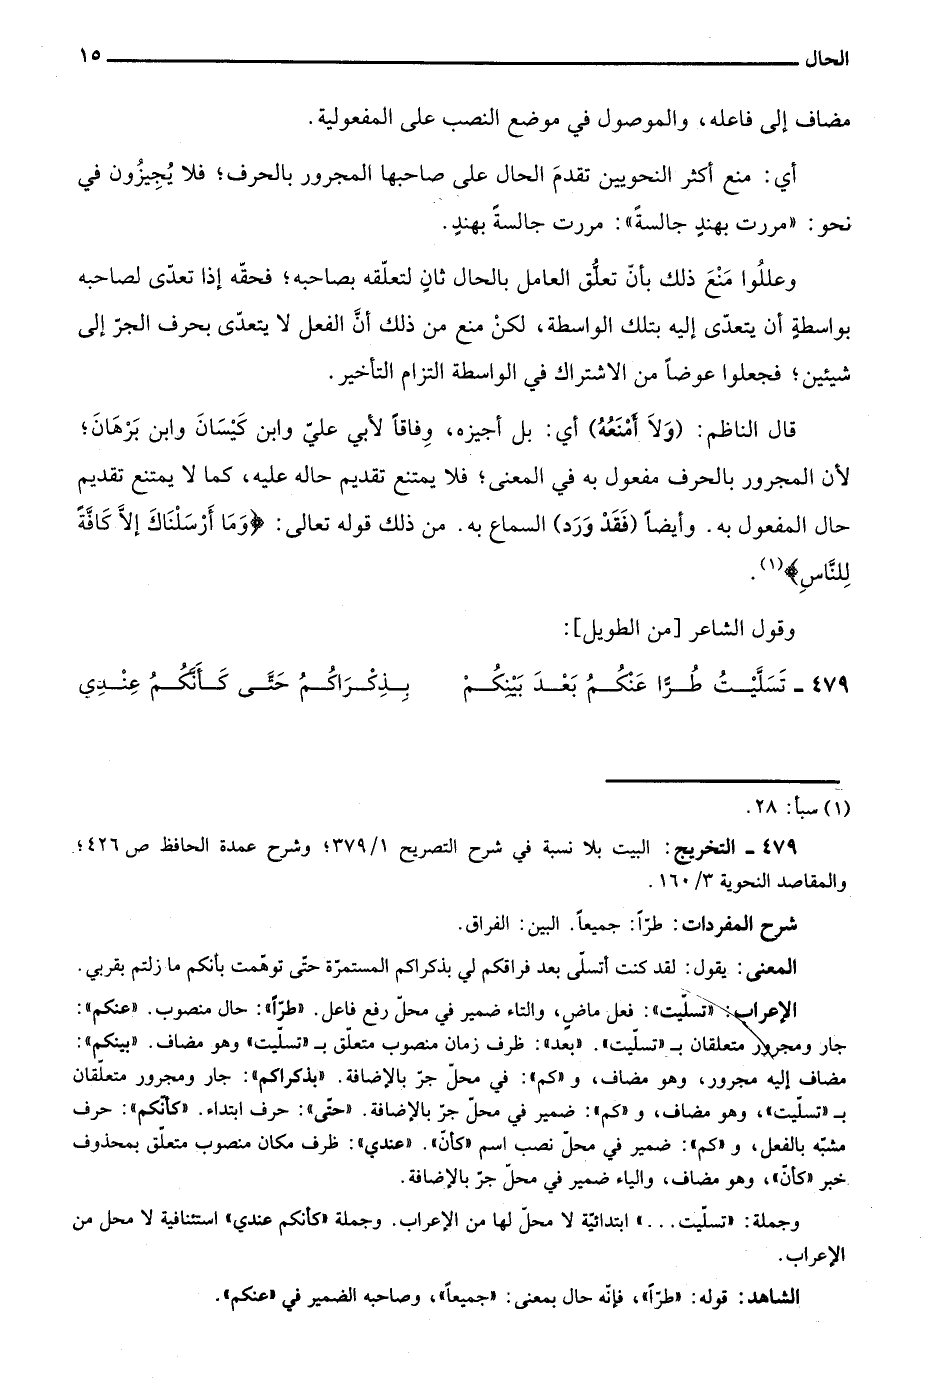 الحال ١٥
مضاف إلى فاعله، والموصول في موضع النصب على المفعولية.
أي: منع أكثر النحويين تقدمَ الحال على صاحبها المجرور بالحرف؛ فلا يُجِيزُون في
نحو: «مررت بهندٍ جالسةً»: مررت جالسةً بهندٍ.
وعللُوا مَنْعَ ذلك بأنّ تعلُّق العامل بالحال ثانٍ لتعلّقه بصاحبه؛ فحقّه إذا تعدّى لصاحبه
بواسطةٍ أن يتعدّى إليه بتلك الواسطة، لكنْ منع من ذلك أنَّ الفعل لا يتعدّى بحرف الجرّ إلى
شيئين؛ فجعلوا عوضاً من الاشتراك في الواسطة التزام التأخير.
قال الناظم: (وَلاَ أَمْنَعُهُ) أي: بل أجيزه، وِفاقاً لأبي عليّ وابن كَيْسَانَ وابن بَرْهَانَ؛
لأن المجرور بالحرف مفعول به في المعنى؛ فلا يمتنع تقديم حاله عليه، كما لا يمتنع تقديم
حال المفعول به. وأيضاً (فَقَدْ وَرَد) السماع به. من ذلك قوله تعالى: ﴿وَمَا أَرْسَلْنَاكَ إلاَّ كَافَّةً
لِلنَّاسِ﴾(١).
وقول الشاعر [من الطويل]:
٤٧٩ ـ تَسَلَّيْتُ طُرًّا عَنْكُمُ بَعْدَ بَيْنِكُمْ بِذِكْرَاكُمُ حَتَّى كَأَنَّكُمُ عِنْدِي
(١) سبأ: ٢٨.
٤٧٩ ـ التخريج: البيت بلا نسبة في شرح التصريح ٣٧٩/١؛ وشرح عمدة الحافظ ص ٤٢٦؛
والمقاصد النحوية ١٦٠/٣.
شرح المفردات: طرّاً: جميعاً. البين: الفراق.
المعنى: يقول: لقد كنت أتسلّى بعد فراقكم لي بذكراكم المستمرّة حتّى توهّمت بأنكم ما زلتم بقربي.
الإعراب: «تسلّيت»: فعل ماضٍ، والتاء ضمير في محلّ رفع فاعل. «طرّاً»: حال منصوب. «عنكم»:
جار ومجرور متعلقان بـ «تسلّيت». «بعد»: ظرف زمان منصوب متعلّق بـ «تسلّيت» وهو مضاف. «بينكم»:
مضاف إليه مجرور، وهو مضاف، و «كم»: في محلّ جرّ بالإضافة. «بذكراكم»: جار ومجرور متعلّقان
بـ «تسلّيت»، وهو مضاف، و «كم»: ضمير في محلّ جرّ بالإضافة. «حتّى»: حرف ابتداء. «كأنّكم»: حرف
مشبّه بالفعل، و «كم»: ضمير في محلّ نصب اسم «كأنّ». «عندي»: ظرف مكان منصوب متعلّق بمحذوف
خبر «كأنّ»، وهو مضاف، والياء ضمير في محلّ جرّ بالإضافة.
وجملة: «تسلّيت...» ابتدائيّة لا محلّ لها من الإعراب. وجملة «كأنكم عندي» استئنافية لا محل من
الإعراب.
الشاهد: قوله: «طرّاً»، فإنّه حال بمعنى: «جميعاً»، وصاحبه الضمير في «عنكم».